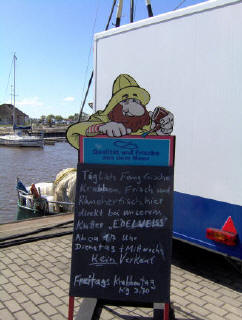 Qualität und Frische
aus dem Meer
Täglich Fangfrische
Krabben, Frisch und
Räucherfisch hier
direkt bei unserem
Kutter "EDELWEISS"
Ab ca 17 Uhr
Dienstag + Mittwoch
Kein Verkauf
Freitags Krabbentag
kg 3,70